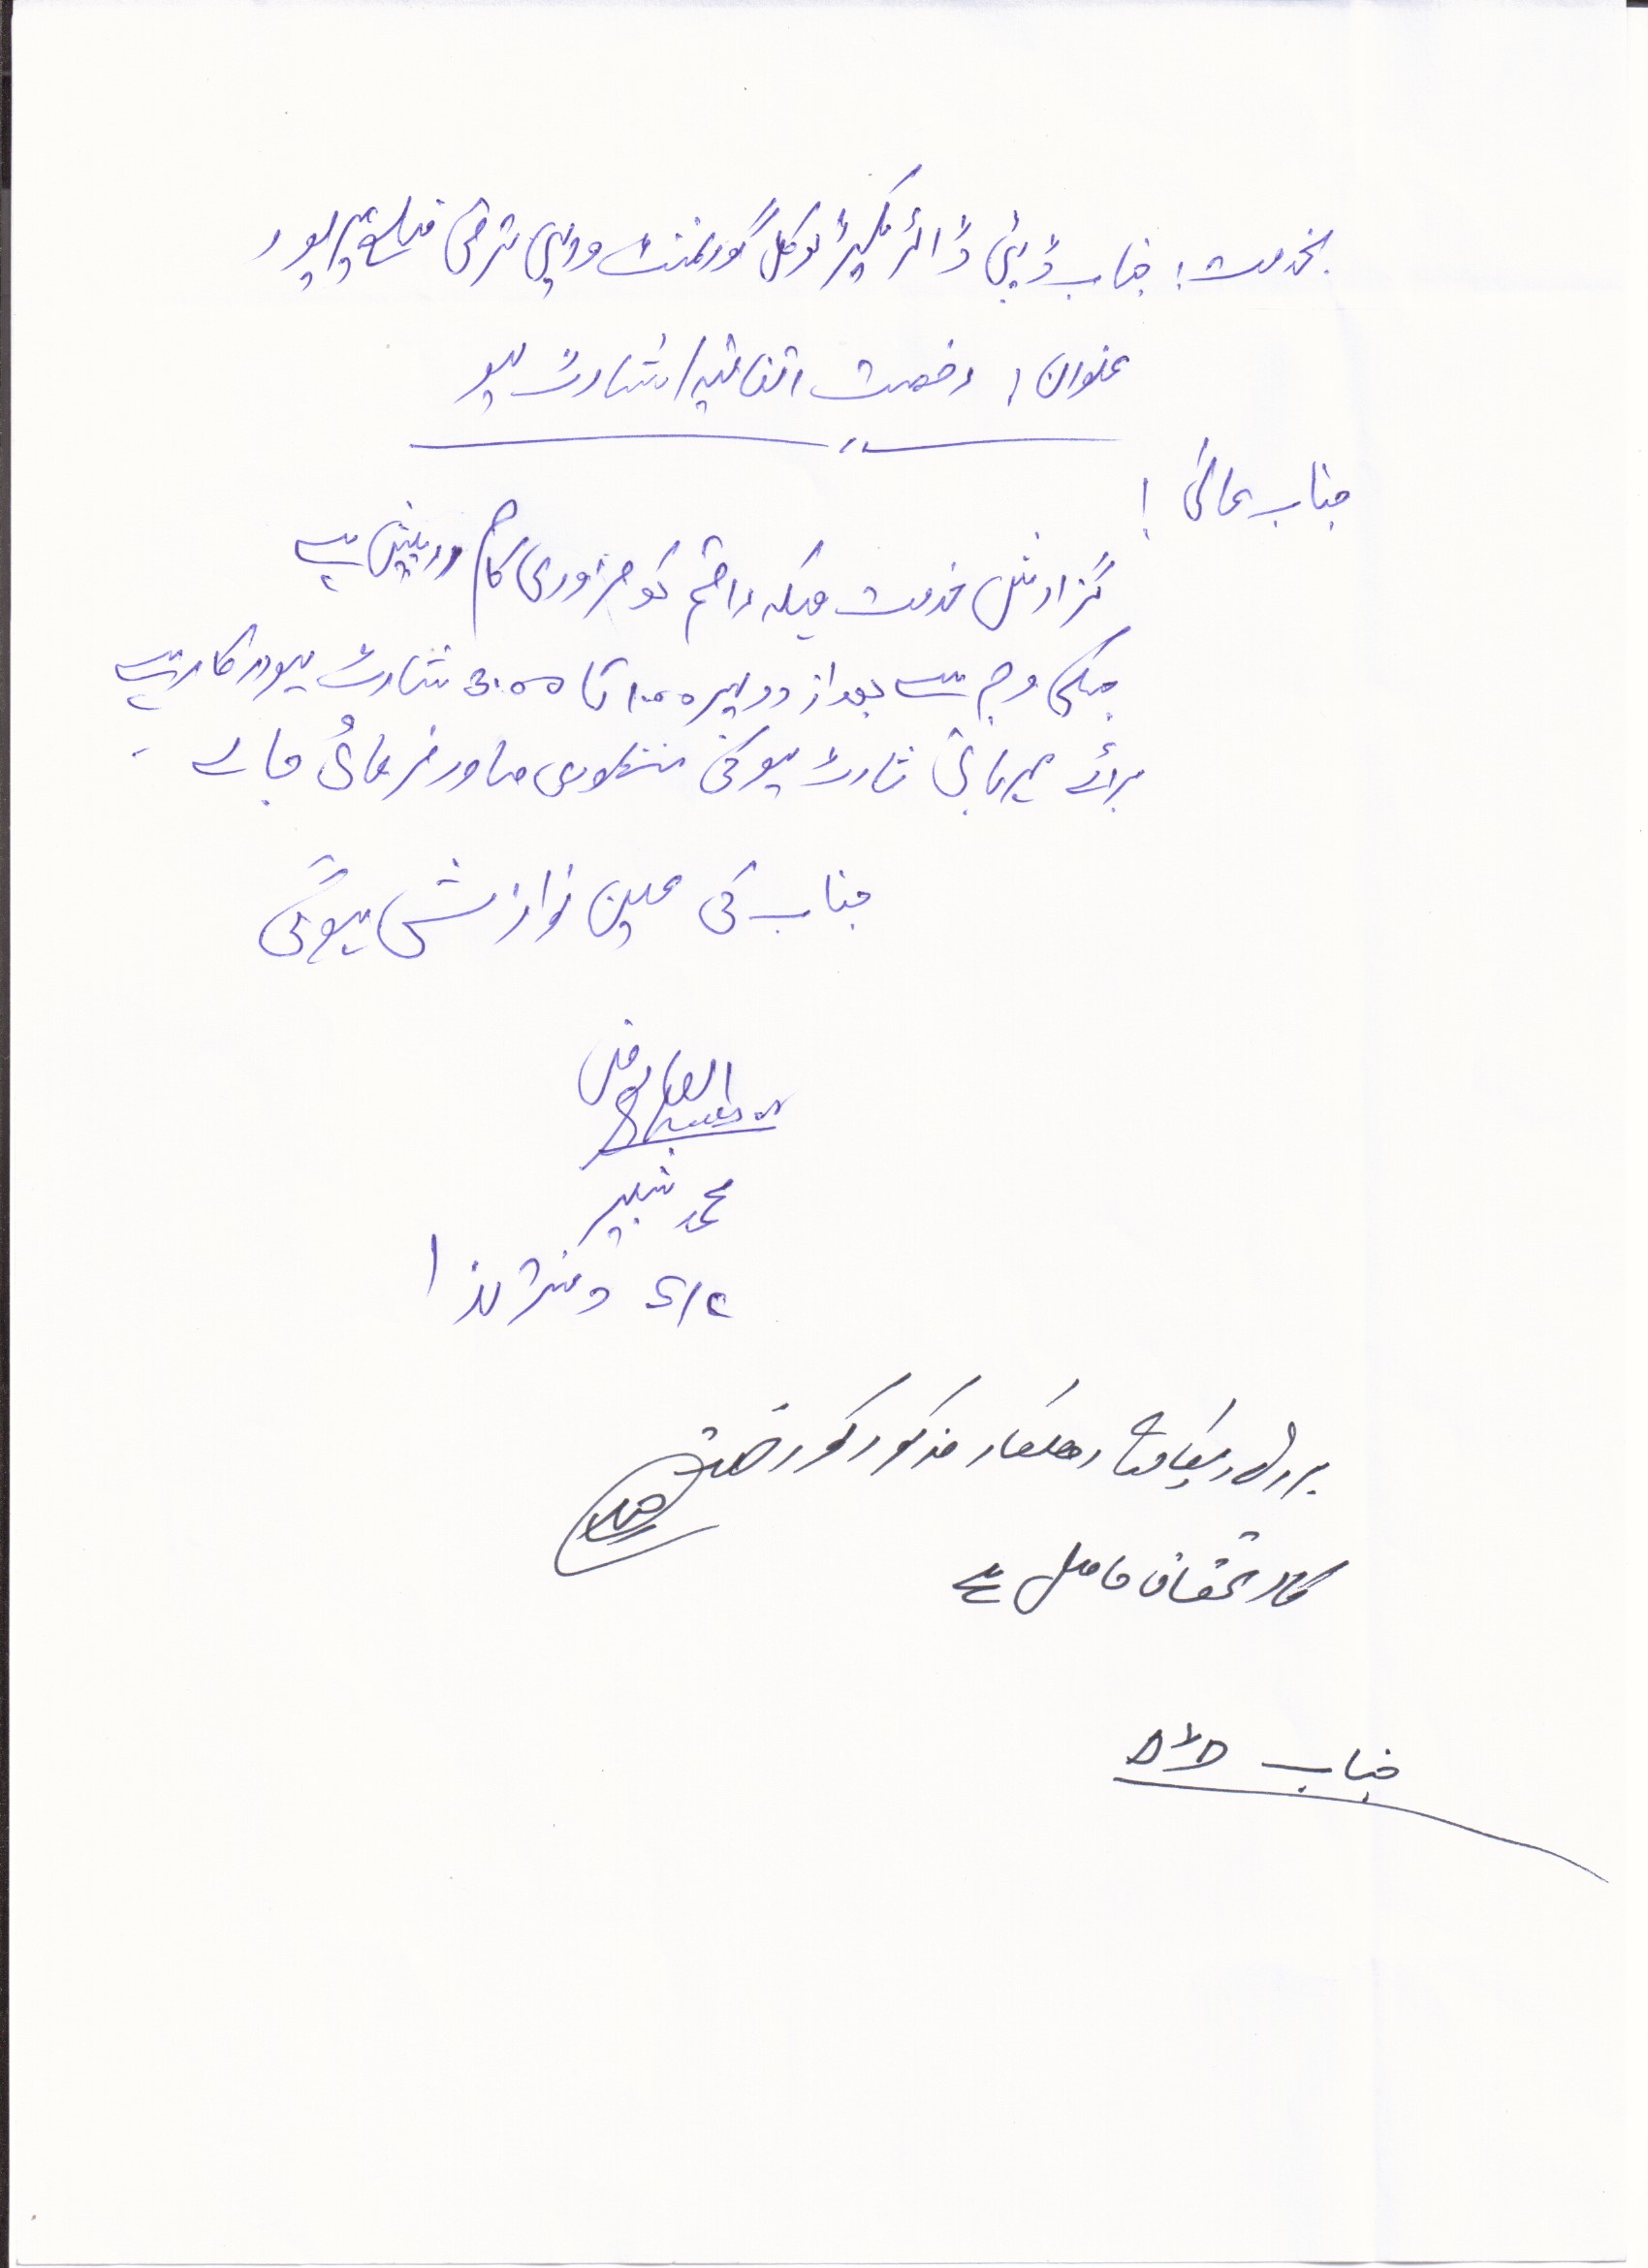 بخدمت! جناب ڈپٹی ڈائریکٹر لوکل گورنمنٹ و دیہی ترقی ضلع میرپور
عنوان! رخصت اتفاقیہ / شارٹ لیو
جناب عالی!
گزارش خدمت ہیکہ راقم کو ضروری کام درپیش ہے
جسکی وجہ سے بعد از دوپہر 1:00 تا 3:00 شارٹ لیو درکار ہے
برائے مہربانی شارٹ لیو کی منظوری صادر فرمائی جائے۔
جناب کی عین نوازش ہوگی
العارض
محمد شبیر
S/C دفتر ہذا
بروئے ریکارڈ اہلکار مذکور کو رخصت
کا استحقاق حاصل ہے
جناب DD